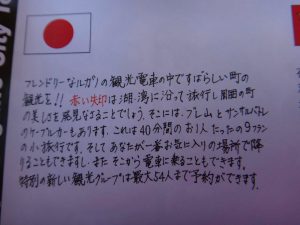 フレンドリーなルガノの観光電車の中ですばらしい町の
観光を!! 赤い矢印は湖、湾に沿って旅行し周囲の町
の美しさを発見なさることでしょう。そこには、ブレ山とサンサルバトレ
のケーブルカーもあります。これは40分間のお1人たったの9フラン
の小旅行です。そしてあなたが一番お気に入りの場所で降
りることもできますし、またそこから電車に乗ることもできます。
特別の新しい観光グループは最大54人まで予約ができます。